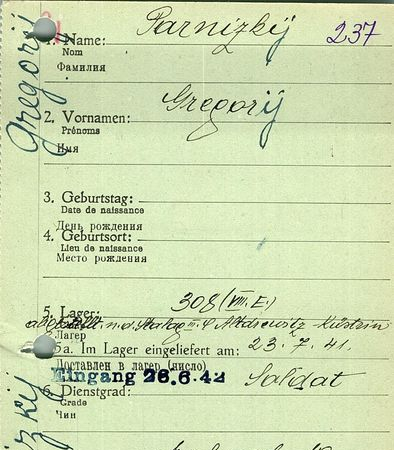 1. Name: Parnizkij 237
Nom
Фамилия
Gregorij
2. Vornamen: Gregorij
Prénoms
Имя
3. Geburtstag:
Date de naissance
День рождения
4. Geburtsort:
Lieu de naissance
Место рождения
5. Lager: 308 (VIII. E.)
n. d. Stalag III C Küstrin
Лагерь
5a. Im Lager eingeliefert am: 23.7.41.
Доставлен в лагерь (число)
Eingang 26.6.42 Soldat
6. Dienstgrad:
Grade
Чин